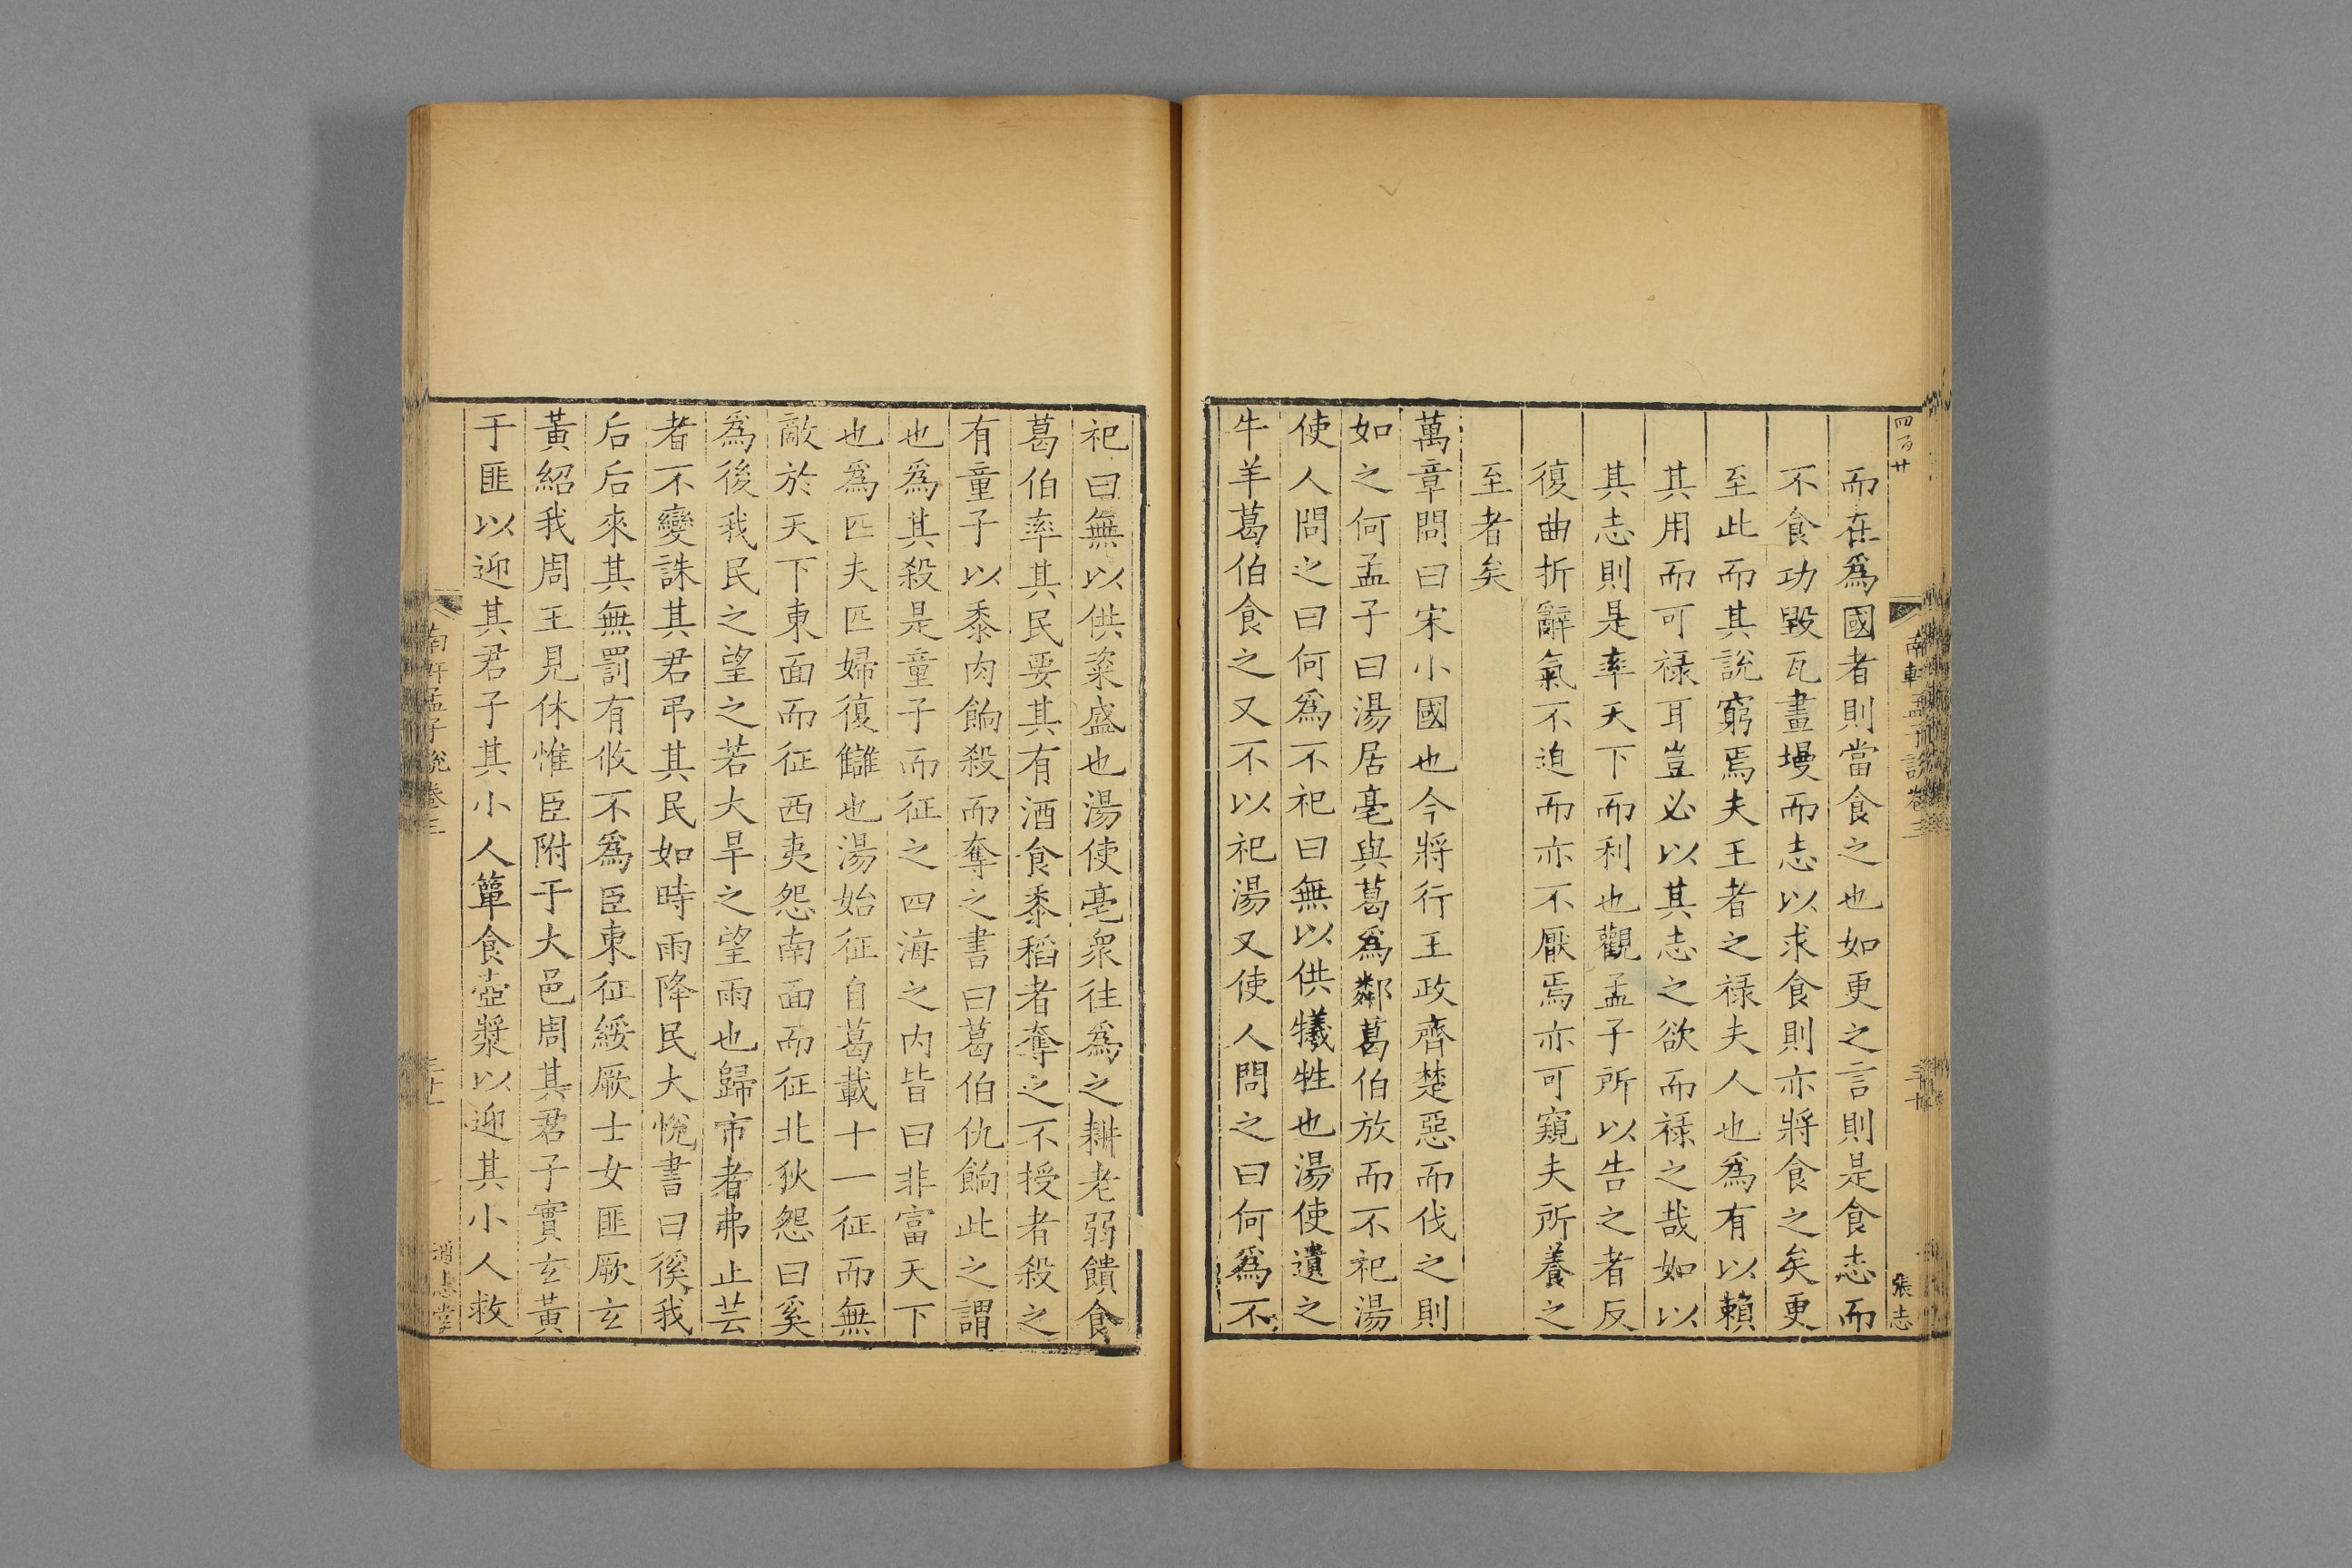 四百廿
南軒孟子說卷三
三十
張志
而在爲國者則當食之也如更之言則是食志而
不食功毀瓦畫墁而志以求食則亦將食之矣更
至此而其說窮焉夫王者之祿夫人也爲有以賴
其用而可祿耳豈必以其志之欲而祿之哉如以
其志則是率天下而利也觀孟子所以告之者反
復曲折辭氣不迫而亦不厭焉亦可窺夫所養之
至者矣
萬章問曰宋小國也今將行王政齊楚惡而伐之則
如之何孟子曰湯居亳與葛爲鄰葛伯放而不祀湯
使人問之曰何爲不祀曰無以供犧牲也湯使遺之
牛羊葛伯食之又不以祀湯又使人問之曰何爲不
祀曰無以供粢盛也湯使亳衆往爲之耕老弱饋食
葛伯率其民要其有酒食黍稻者奪之不授者殺之
有童子以黍肉餉殺而奪之書曰葛伯仇餉此之謂
也爲其殺是童子而征之四海之內皆曰非富天下
也爲匹夫匹婦復讎也湯始征自葛載十一征而無
敵於天下東面而征西夷怨南面而征北狄怨曰奚
爲後我民之望之若大旱之望雨也歸市者弗止芸
者不變誅其君弔其民如時雨降民大悅書曰徯我
后后來其無罰有攸不爲臣東征綏厥士女匪厥玄
黃紹我周王見休惟臣附于大邑周其君子實玄黃
于匪以迎其君子其小人簞食壺漿以迎其小人救
南軒孟子說卷三
三十一
通志堂